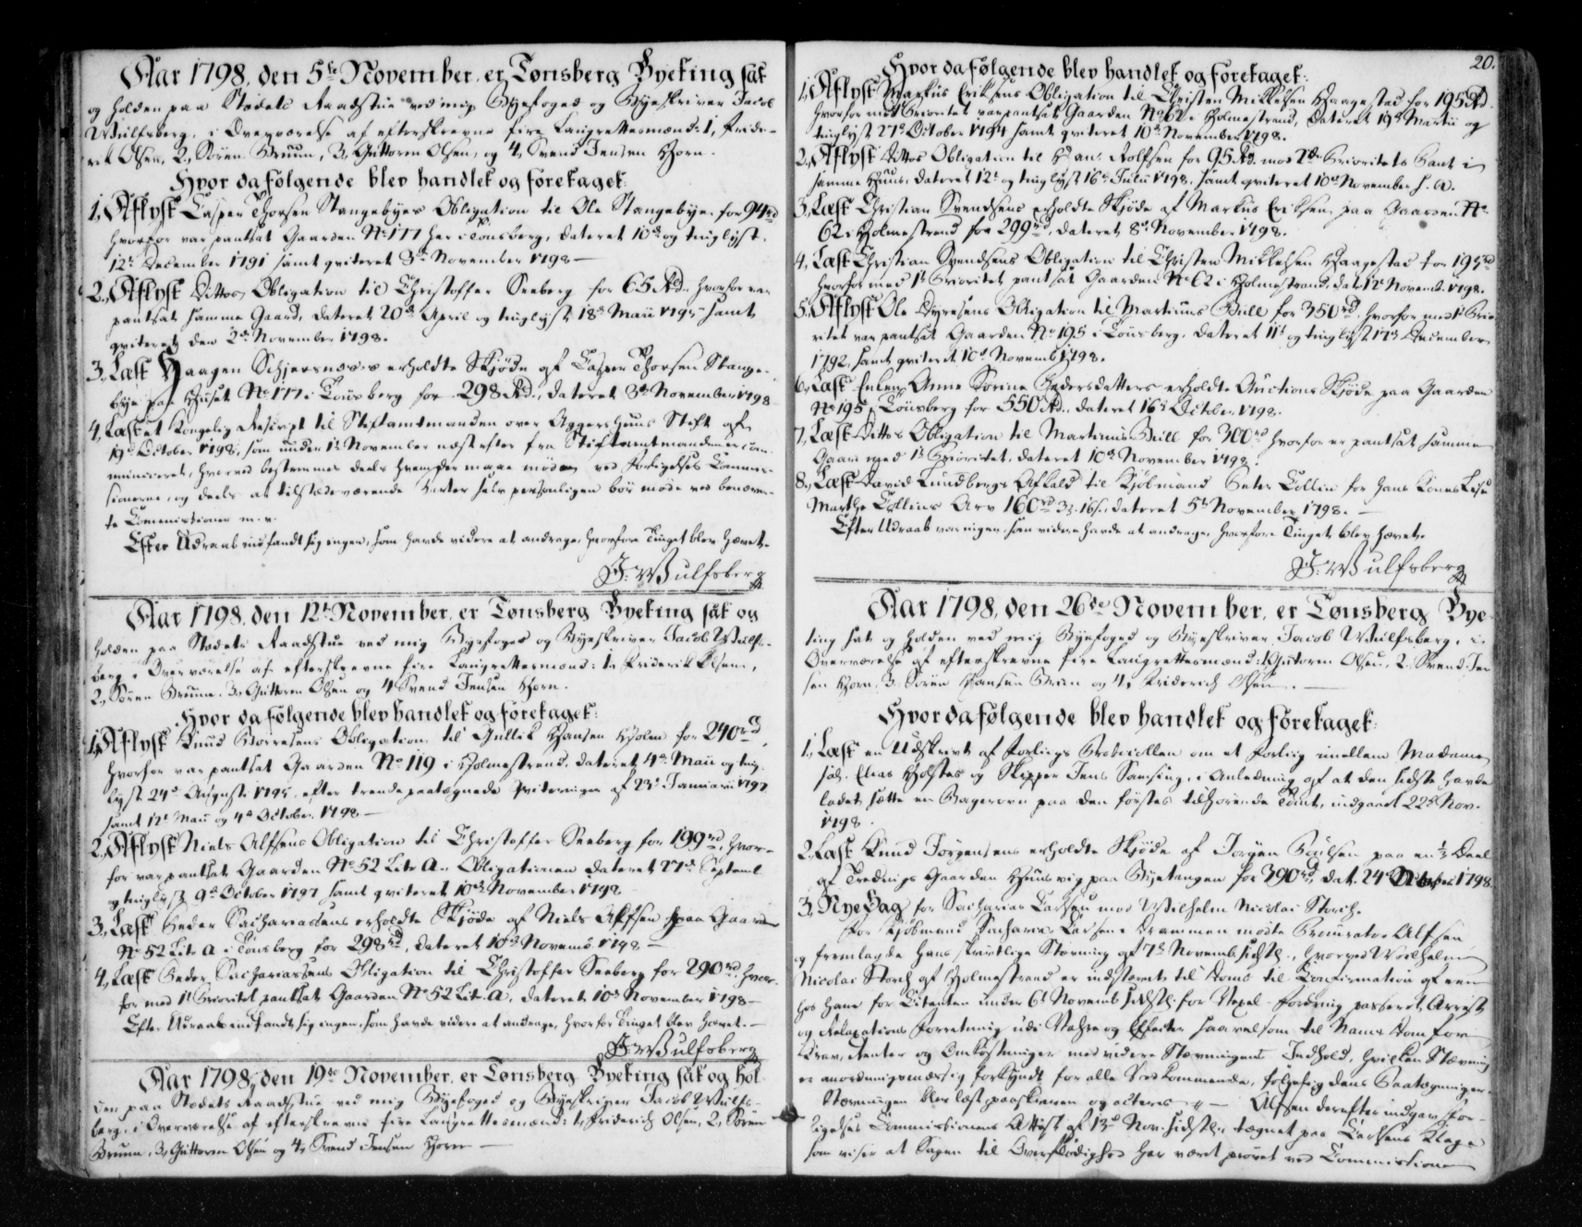 Aar 1798, den 5te November, er Tønsberg Byeting sat
og holden paa Stædets Raadstue ved mig Byefoged og Byeskriver Jacob
Wulfsberg, i Overværelse af efterskrevne fire Laugrettesmænd: 1, Fride-
rik Olsen, 2, Sören Bruun, 3, Guttorm Olsen, og 4, Svend Jensen Hiorn.
Hvor da følgende blev handlet og foretaget:
1, Aflyst Casper Thorsen Stangebyes Obligation til Ole Stangebye for 94rd
hvorfor var pantsat Gaarden No 177 her i Tönsberg, dateret 10de og tinglyst
12te December 1791 samt qviteret 3de November 1798 —
2, Aflyst Dittos Obligation til Christoffer Seeberg for 65 Rd. hvorfor var
pantsat samme Gaard, dateret 20de April og tinglyst 18de Maii 1795 samt
qviteret den 3de November 1798.
3, Læst Haagen Schjersnæs's erholdte Skjöde af Casper Thorsen Stange-
bye paa Huuset No 177 i Tönsberg for 298 Rd., dateret 3de November 1798
4, Læst et Kongelig Rescript til Stiftamtmanden over Aggershuus Stift af
19de October 1798, som under 1te November næstefter fra Stiftamtmanden er com-
municeret, hvorved bestemmes deels hvem der maae møde ved Forligelses Commis-
sionerne, og deels at tilstædeværende Parter selv personligen bör møde ved benævn-
te Commissioner m. v.
Efter Udraab indfandt sig ingen, som havde videre at andrage, hvorfore Tinget blev hævet.
J: Wulfsberg
Aar 1798, den 12te November, er Tønsberg Byeting sat og
holden paa Stædets Raadstue ved mig Byefoged og Byeskriver Jacob Wulfs-
berg i Overværelse af efterskrevne fire Laugrettesmænd: 1, Friderik Olsen,
2, Sören Bruun, 3, Guttorm Olsen og 4 Svend Jensen Hjorn.
Hvor da følgende blev handlet og foretaget:
1, Aflyst Knud Börresens Obligation til Gullik Hansen Holm for 240rd,
hvorfor var pantsat Gaarden No 119 i Holmestrand, dateret 4de Maii og ting-
lyst 24de August 1795, efter trende paategnede Qviteringer af 23de Januarii 1797
samt 12te Maii og 4de October 1798 —
2, Aflyst Niels Alfsens Obligation til Christoffer Seeberg for 199rd, hvor-
for var pantsat Gaarden No 52 Litr. A. Obligationen dateret 27de Septembr.
og tinglyst 9de October 1797 samt qviteret 10de November 1798.
3, Læst Peder Zachariasens erholdte Skjöde af Niels Alfsen paa Gaarden
No 52 Litr A i Tönsberg for 298rd, dateret 10de Novemb 1798 —
4, Læst Peder Zachariasens Obligation til Christoffer Seeberg for 290rd, hvor-
for med 1te Prioritet pantsat Gaarden No 52 Litr. A, dateret 10de November 1798 —
Efter Udraab indfandt sig ingen, som havde videre at andrage, hvorfor Tinget blev hævet. —
J: Wulfsberg
Aar 1798, den 19de November, er Tønsberg Byeting sat og hol-
den paa Stædets Raadstue ved mig Byefoged og Byeskriver Jacob Wulfs-
berg, i Overværelse af efterskrevne fire Laugrettesmænd: 1, Friderich Olsen, 2, Sören
Bruun, 3, Guttorm Olsen og 4, Svend Jensen Hjorn —
20.
Hvor da følgende blev handlet og foretaget:
1, Aflyst Markus Eriksens Obligation til Christen Mikkelsen Haagestad for 195 Rd.
hvorfor med Prioritet var pantsat Gaarden No 62 i Holmestrand, dateret 19de Martii og
tinglyst 27de October 1794 samt qviteret 10de November 1798.
2, Aflyst Dittos Obligation til Hans Rolfsen for 95 Rd. mod 2den Prioritets Pant i
samme Huus, dateret 12te og tinglyst 16de Julii 1798, samt qviteret 10de November s. A.
3, Læst Christian Svendsens erholdte Skjöde af Markus Eriksen paa Gaarden No
62 i Holmestrand for 299rd, dateret 8de November 1798.
4, Læst Christian Svendsens Obligation til Christen Mikkelsen Haagestad for 195rd
hvorfor med 1te Prioritet pantsat Gaarden No 62 i Holmestrand, dat. 12te Novemb. 1798.
5, Aflyst Ole Dyresens Obligation til Martinus Bull for 350rd, hvorfor med 1te Prio-
ritet var pantsat Gaarden No 195 i Tönsberg, dateret 11te og tinglyst 17de December
1792, samt qviteret 10de Novemb. 1798.
6, Læst Enken Anne Sorine Pedersdatters erholdte Auctions Skjöde paa Gaarden
No 195 i Tönsberg for 550 Rd., dateret 16de October 1798.
7, Læst Dittos Obligation til Martinus Bull for 300rd hvorfor er pantsat samme
Gaard med 1te Prioritet, dateret 10de November 1798.
8, Læst David Lundbergs Afkald til Kjöbmand Peter Collin for hans Kones Lise
Marthe Collins Arv 160rd 3. 16 s., dateret 5te November 1798. —
Efter Udraab var ingen, som videre havde at andrage, hvorfore Tinget blev hævet.
J: Wulfsberg
Aar 1798, den 26de November, er Tønsberg Bye-
ting sat og holden ved mig Byefoged og Byeskriver Jacob Wulfsberg, i
Overværelse af efterskrevne fire Laugrettesmænd: 1, Guttorm Olsen, 2, Svend Jen-
sen Hjorn, 3, Sören Hansen Bruun og 4, Friderich Olsen. —
Hvor da følgende blev handlet og foretaget:
1, Læst en Udskrivt af Forligs Protocollen om et Forlig imellem Madame
sal. Elias Holstes og Skipper Jens Samsing, i Anledning af at den sidste havde
ladet sætte en Bagerovn paa den førstes tilhörende Tomt, indgaaet 22de Nov.
1798.
2, Læst Knud Jörgensens erholdte Skjöde af Jörgen Poulsen paa en ½ Deel
af Gaarden Huusvig paa Byetangen for 390rd, dat. 24de October 1798.
3, Nye Sag for Zacharias Larsen mod Wilhelm Nicolai Storch.
For Kjöbmand Zacharias Larsen i Drammen mødte Procurator Alfsen
og fremlagde hans skriftlige Stævning af 7de Novemb. sidstl., hvorved Wilhelm
Nicolai Storch af Holmestrand er indstævnt til Doms til Confirmation af een
hos ham for Citanten under 6te Novemb. sidstl. for Vexel-Fordring passeret Arrest
og Relaxations Forretning udi Vahre og Effecter saavelsom til Nams Dom for
Krav, Renter og Omkostninger med videre Stævningens Indhold, hvilken Stævning
er anordningsmæssig forkyndt for alle Vedkommende, følgelig dens Paategninger.
Stævningen blev læst paaskreven og acteres — Alfsen derefter indgav For-
ligelses Commissionens Attest af 13de Nov. sidstl., tegnet paa Larsens Klage
som viser at Sagen til Overflödighed har været prøvet ved Commissionen